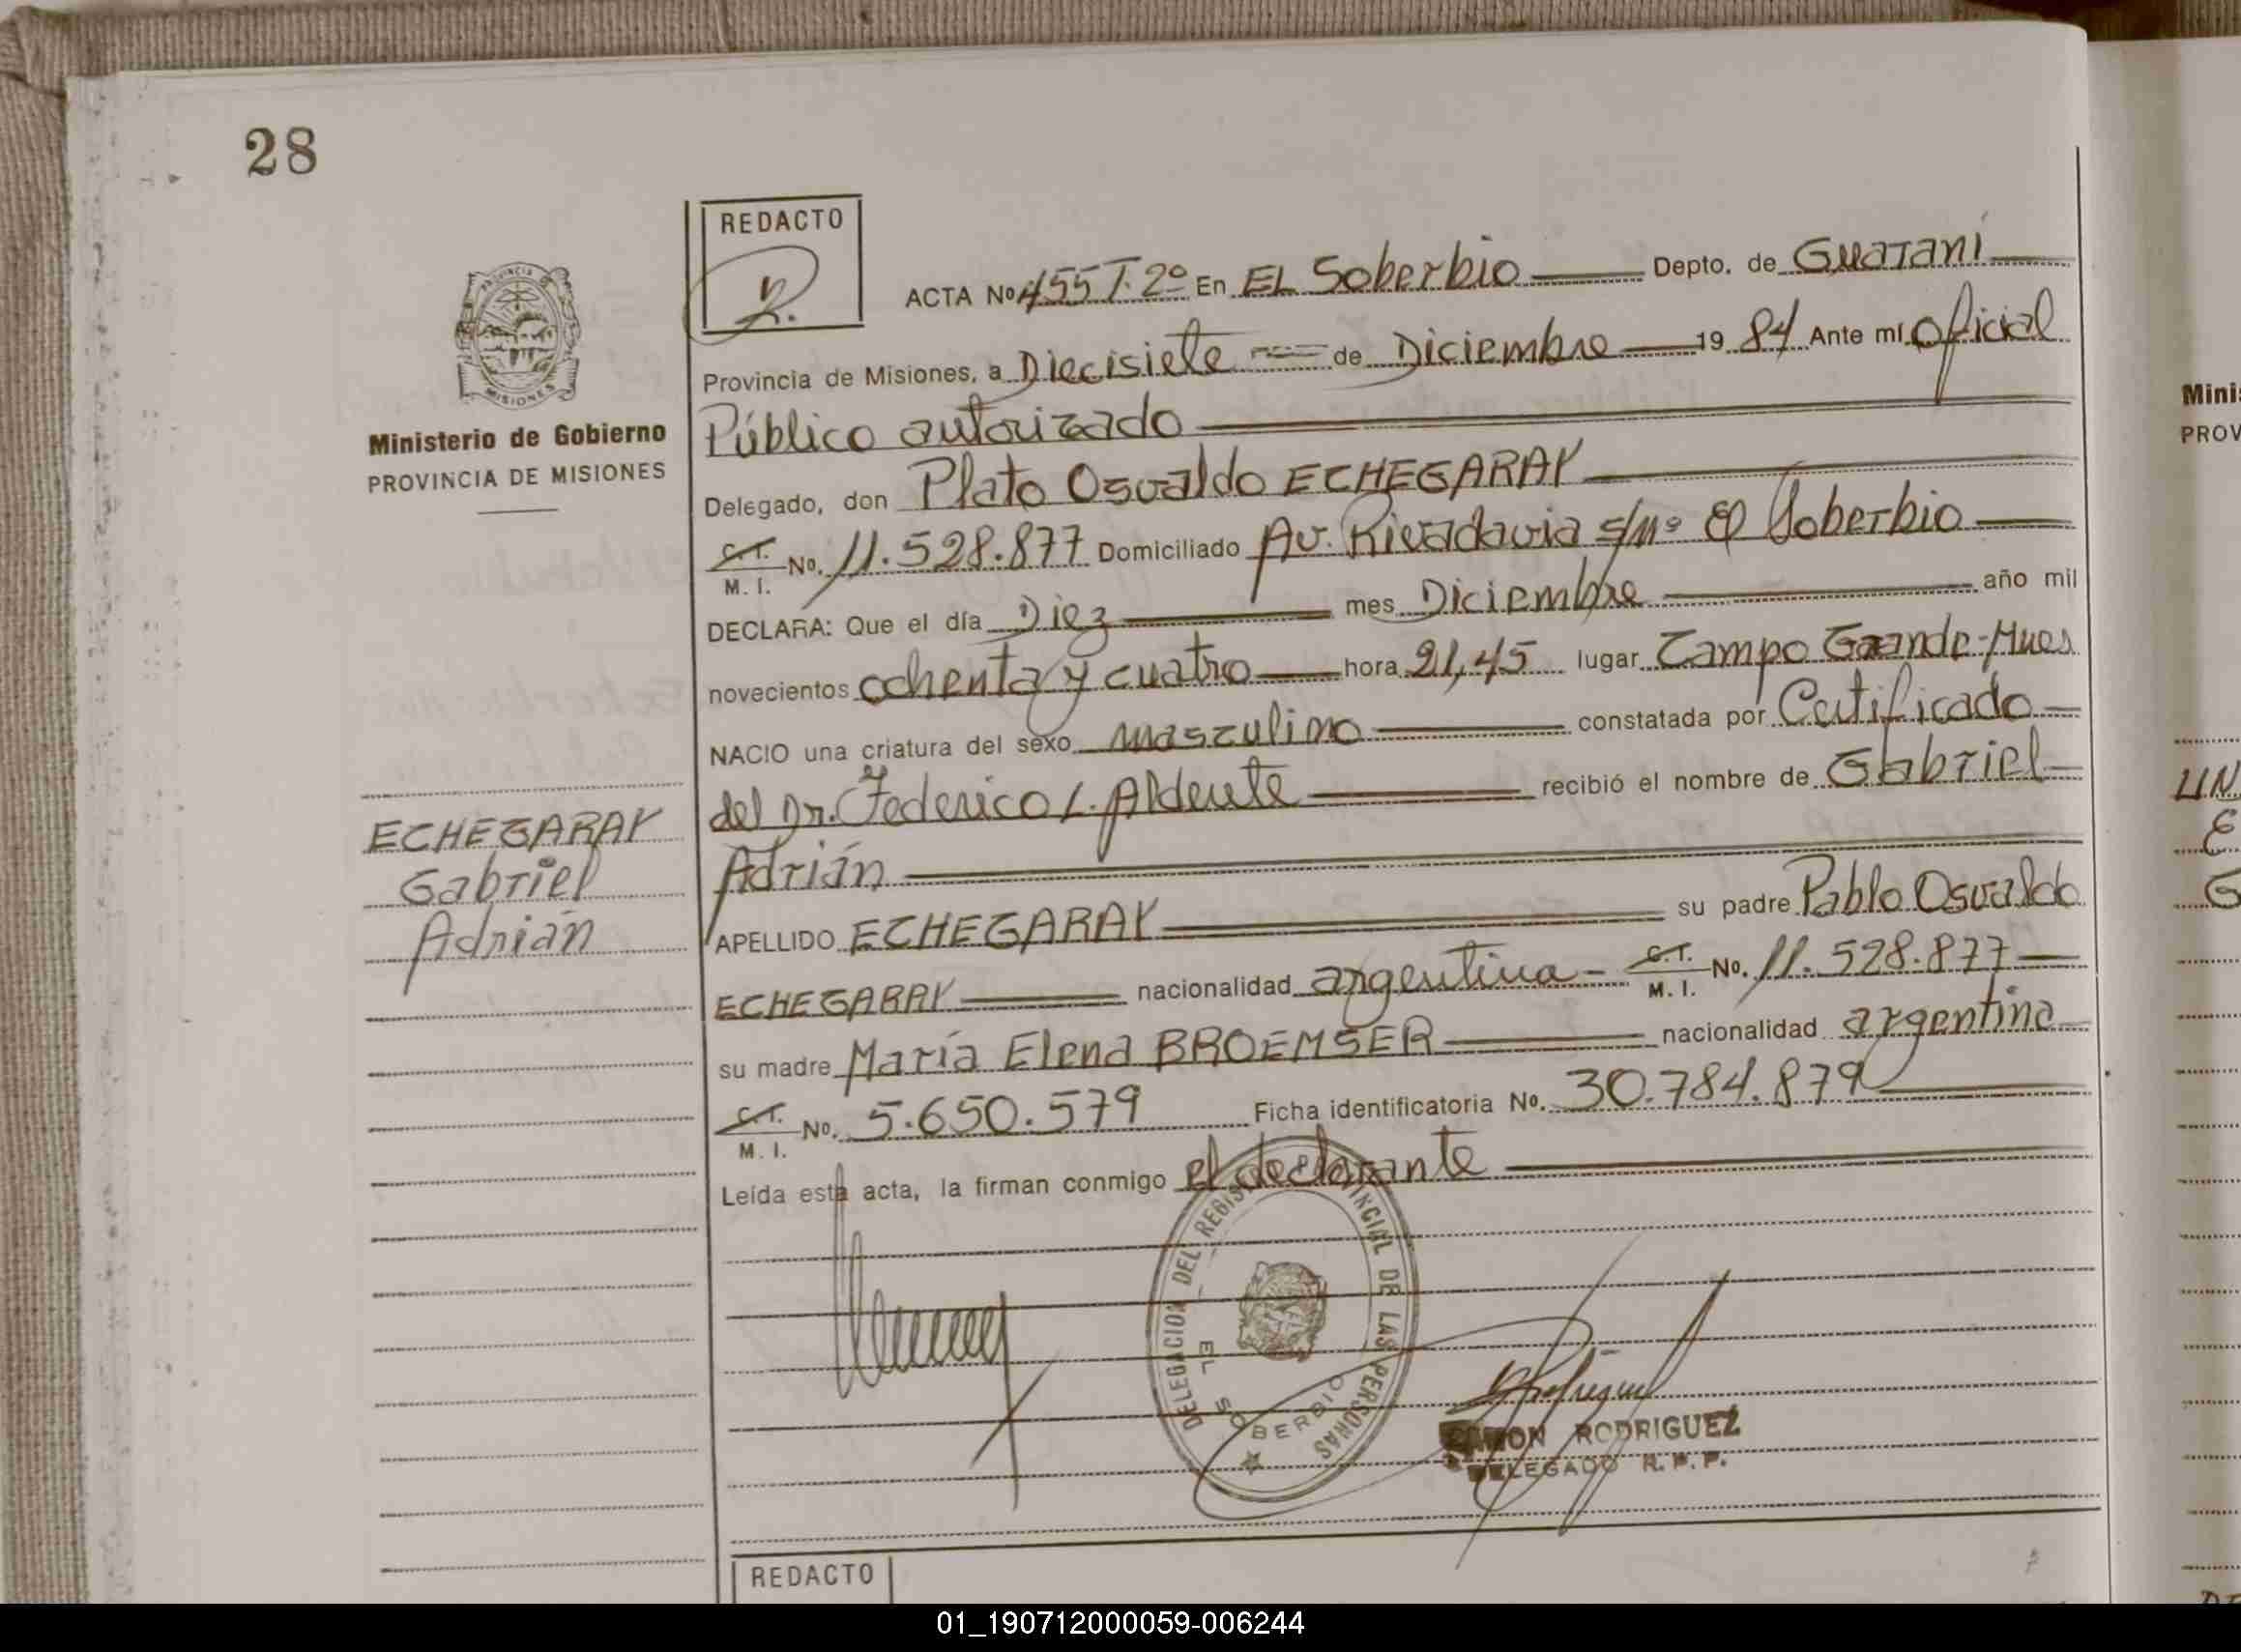 28
REDACTO
R.
PROVINCIA DE
MISIONES
Ministerio de Gobierno
PROVINCIA DE MISIONES
ACTA Nº 455 T. 2º En EL Soberbio Depto. de Guaraní
Provincia de Misiones, a Diecisiete de Diciembre 19 84 Ante mí Oficial
Público autorizado
Delegado, don Plato Osvaldo ECHEGARAY
C.I. M.I. Nº. 11.528.877 Domiciliado Av. Rivadavia s/nº El Soberbio
DECLARA: Que el día Diez mes Diciembre año mil
novecientos ochenta y cuatro hora 21,45 lugar Campo Grande-Mnes
NACIO una criatura del sexo masculino constatada por Certificado
del Dr. Federico L. Aldente recibió el nombre de Gabriel
Adrián
APELLIDO ECHEGARAY su padre Pablo Osvaldo
ECHEGARAY nacionalidad argentina C.I. M.I. Nº. 11.528.877
su madre María Elena BROEMSER nacionalidad argentina
C.I. M.I. Nº. 5.650.579 Ficha identificatoria Nº. 30.784.879
Leída esta acta, la firman conmigo el declarante
ECHEGARAY
Gabriel
Adrián
DELEGACION DEL REGISTRO PROVINCIAL DE LAS PERSONAS
EL SOBERBIO
RAMON RODRIGUEZ
DELEGADO R.P.P.
REDACTO
Minis
PROV
01_190712000059-006244